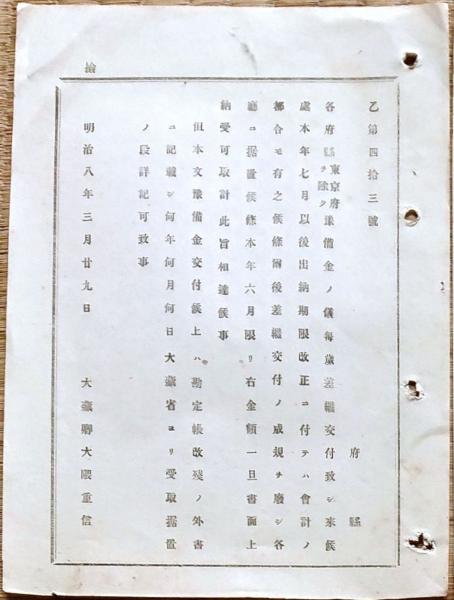 乙第四拾三號
府縣
各府縣東京府ヲ除ク豫備金ノ儀每歲差繼交付致シ來候
處本年七月以後出納期限改正ニ付テハ會計ノ
都合モ有之候條爾後差繼交付ノ成規ヲ廢シ各
廳ニ据置候條本年六月限リ右金額一旦書面上
納受可取計此旨相達候事
但本文豫備金交付候上ハ勘定帳改殘ノ外書
ニ記載シ何年何月何日大藏省ヨリ受取据置
ノ段詳記可致事
明治八年三月廿九日
大藏卿大隈重信